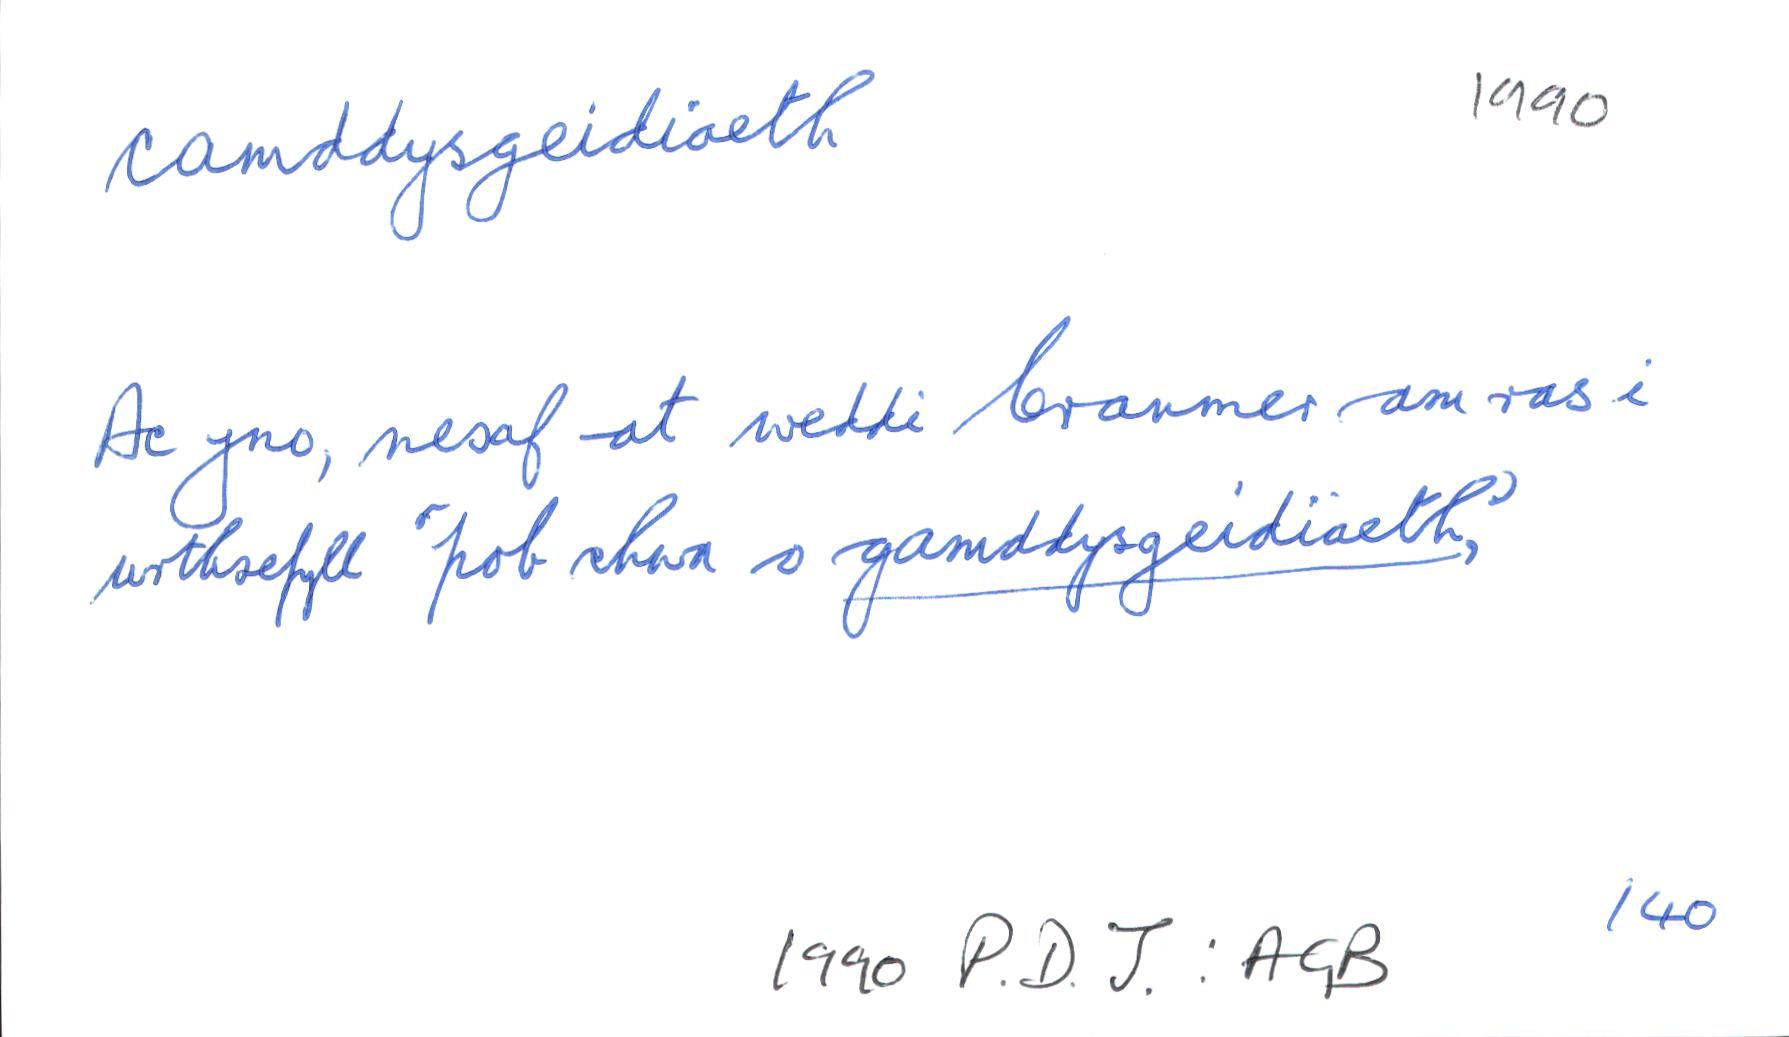 camddysgeidiaeth 1990
Ac yno, nesaf at weddi Cranmer am ras i
wrthsefyll "pob chwa o gamddysgeidiaeth,"
140
1990 P.D.J. : AGB